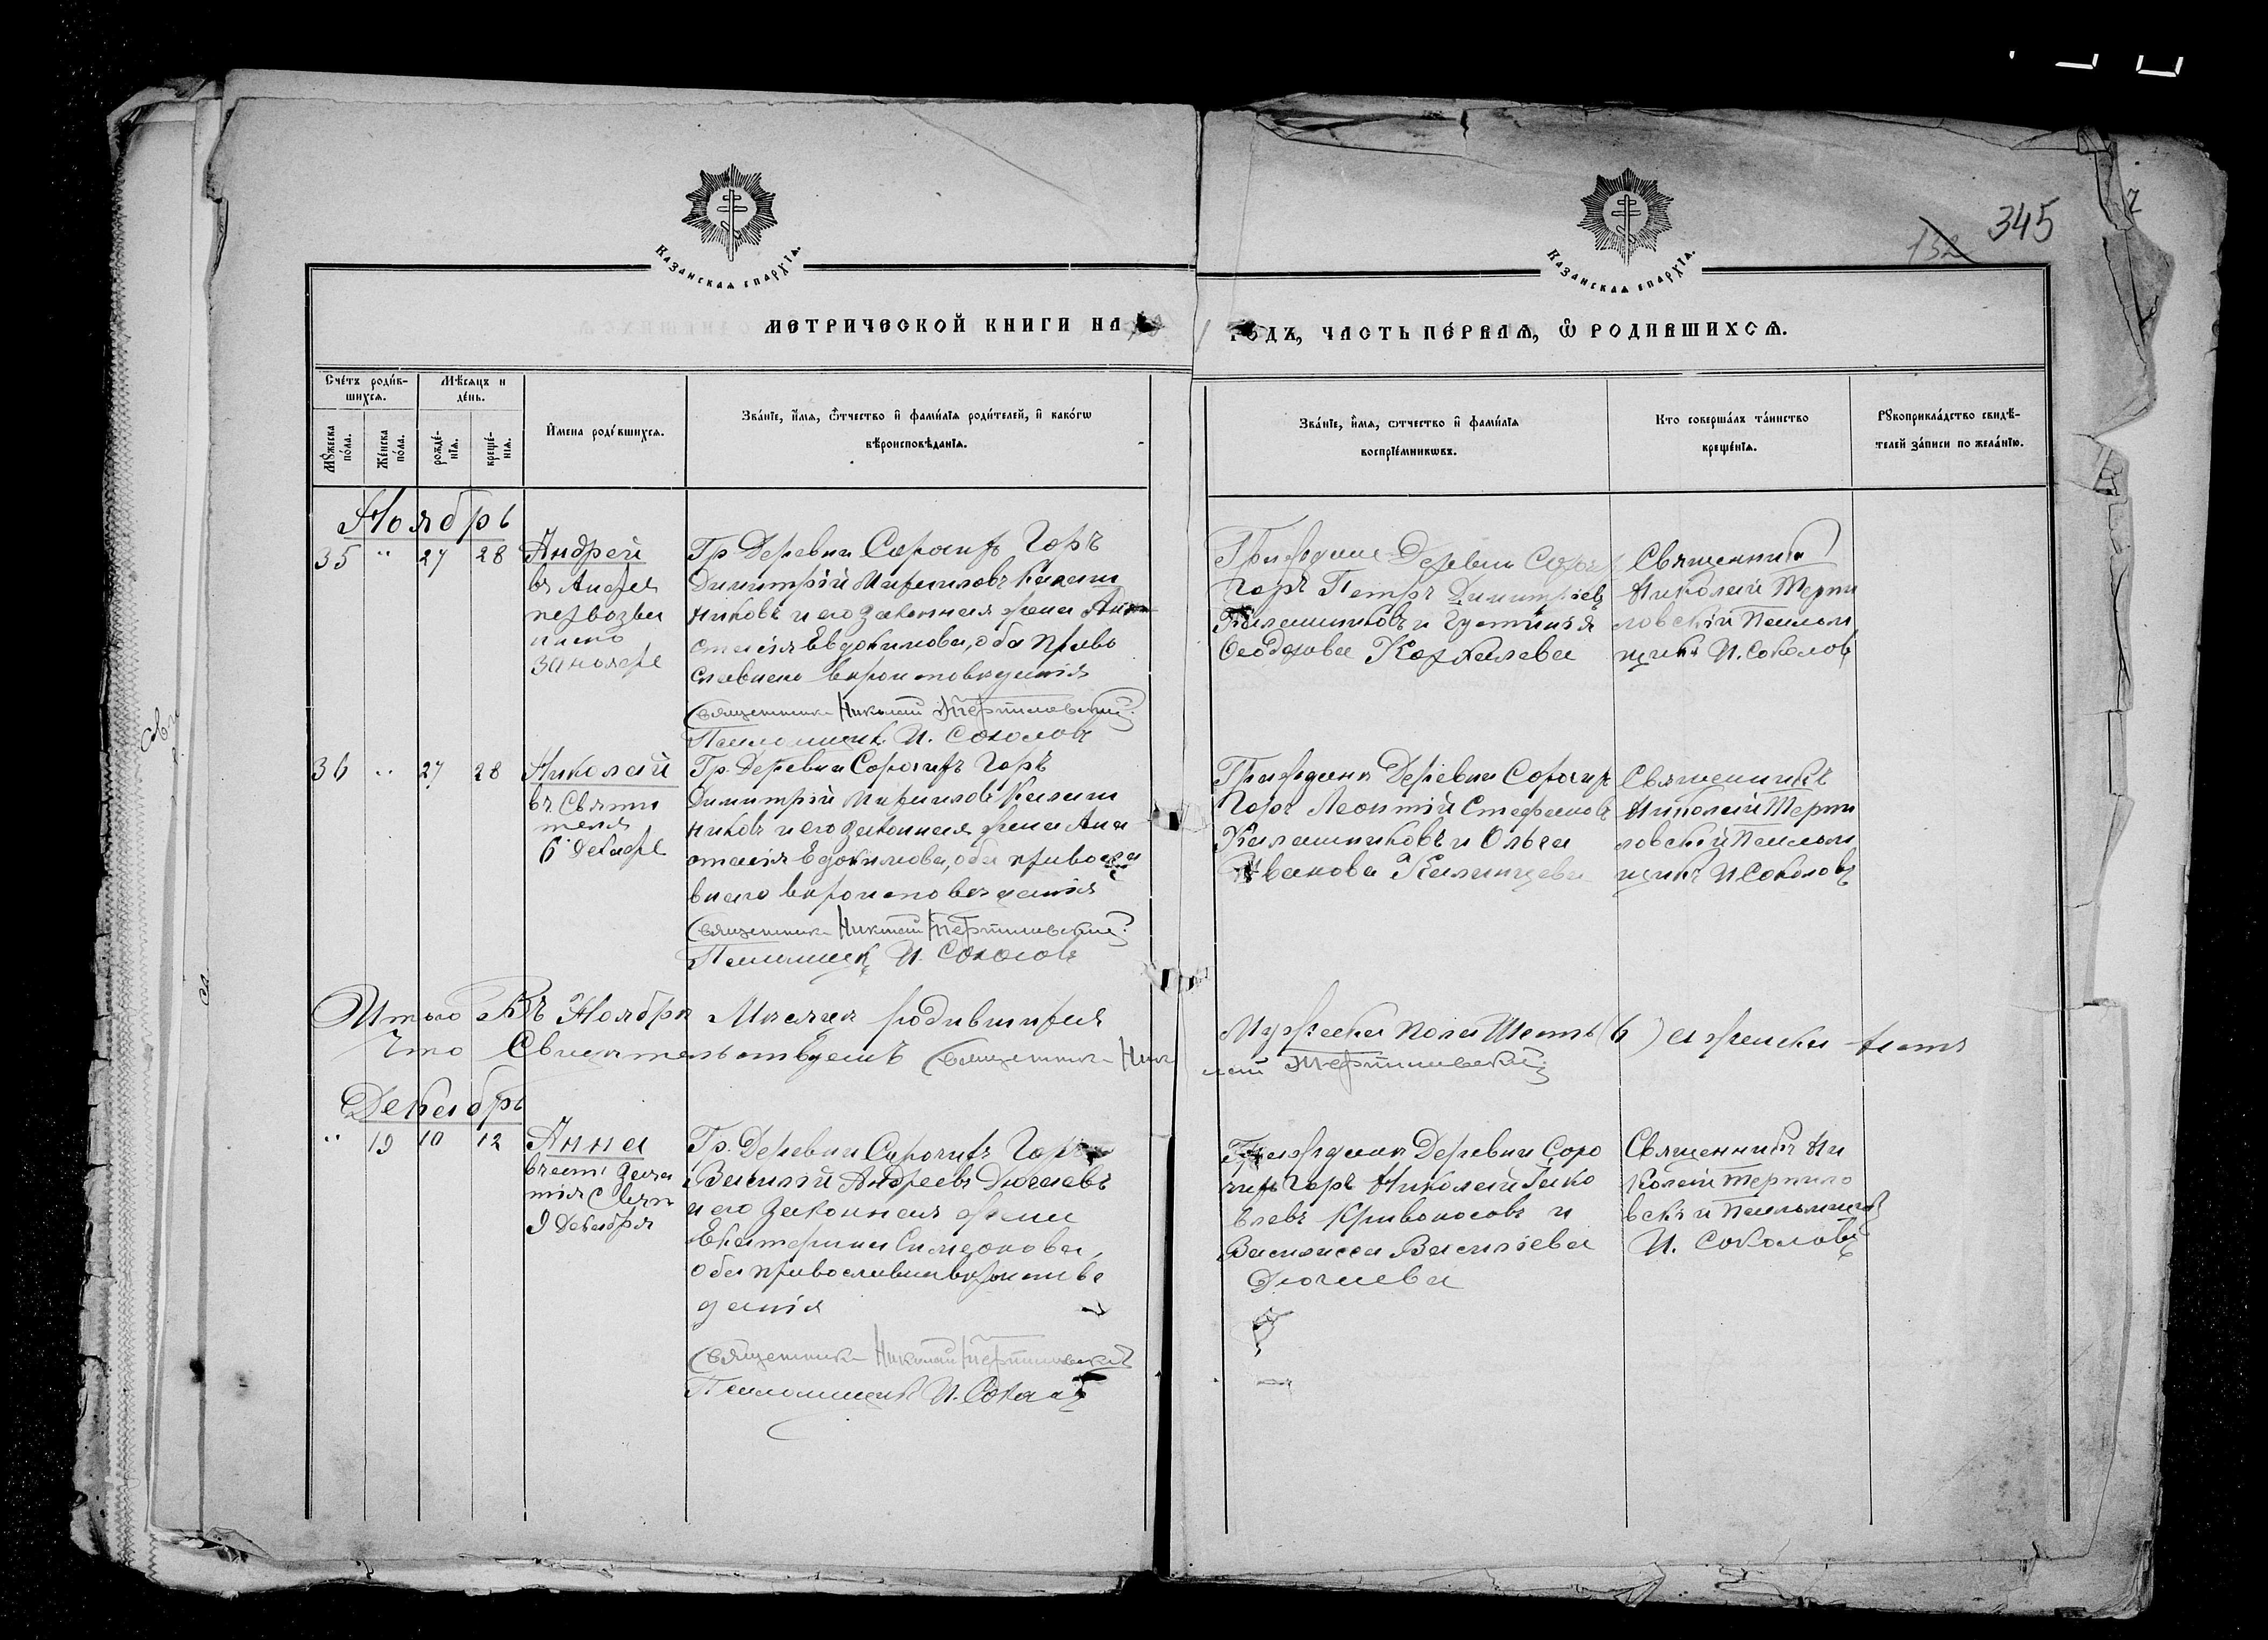 345
132
КАЗАНСКАѦ ЕПАРХІѦ.
КАЗАНСКАѦ ЕПАРХІѦ.
МЕТРИЧЕСКОЙ КНИГИ НА
ГОДЪ, ЧАСТЬ ПЕ́РВАѦ, Ѿ РОДИВШИХСѦ.
Сче́тъ роди́в-
шихсѧ.
Мѣ́сѧцъ и
де́нь.
Мꙋ́жеска
по́ла.
Же́нска
по́ла.
рожде́-
нїѧ.
креще́-
нїѧ.
И҆мена роди́вшихсѧ.
Зва́нїе, и҆́мѧ, ѻ҆́тчество и҆ фами́лїѧ роди́телей, и҆ како́гѡ
вѣроисповѣ́данїѧ.
Зва́нїе, и҆́мѧ, ѻ҆тчество и҆ фами́лїѧ
воспрїе́мникѡвъ.
Кто соверша́лъ та́инство
креще́нїѧ.
Рꙋкоприкла́дство свидѣ́-
телей за́писи по жела́нїю.
Ноябрь
35 " 27 28 Андрей
въ Андрея
первозван
наго
30 ноября
Гр. Деревни Сорочихъ Горъ
Димитрій Кирилловъ Калаш
никовъ и его законная жена Ана
стасія Евдокимова, оба право
славнаго вероисповеданія
Священникъ Николай Терпиловскій
Псаломщикъ И. Соколовъ
Граждане Деревни Сороч
Горъ Петръ Димитріевъ
Калашниковъ и Устинія
Ѳеодорова Карталева
Священникъ
Николай Терпи
ловскій Псалом
щикъ И. Соколовъ
36 " 27 28 Николай
въ Святи
теля
6 Декабря
Гр. Деревни Сорочихъ Горъ
Димитрій Кирилловъ Калаш
никовъ и его законная жена Ана
стасія Евдокимова, оба правосла
внаго вероисповеданія
Священникъ Николай Терпиловскій
Псаломщикъ И. Соколовъ
Гражданинъ Деревни Сорочихъ
Горъ Леонтій Стефановъ
Калашниковъ и Ольга
Иванова Калинцева
Священникъ
Николай Терпи
ловскій Псалом
щикъ И. Соколовъ
Итого Въ Ноябре Месяце родившихся
Мужеска пола Шесть (6) а женска
Что Свидетельствуетъ Священникъ Нико
лай Терпиловскій
Декабрь
" 19 10 12 Анна
въ честь зача
тія Святы
9 Декабря
Гр. Деревни Сорочихъ Горъ
Василій Андреевъ Дючаевъ
и его законная жена
Екатерина Симеонова,
оба православна вероиспове
данія
Священникъ Николай Терпиловскій
Псаломщикъ И. Соколовъ
Гражданинъ Деревни Соро
чихъ Горъ Николай Яко
влевъ Кривоносовъ и
Василисса Васильева
Дючаева
Священникъ Ни
колай Терпило
вскій Псаломщикъ
И. Соколовъ